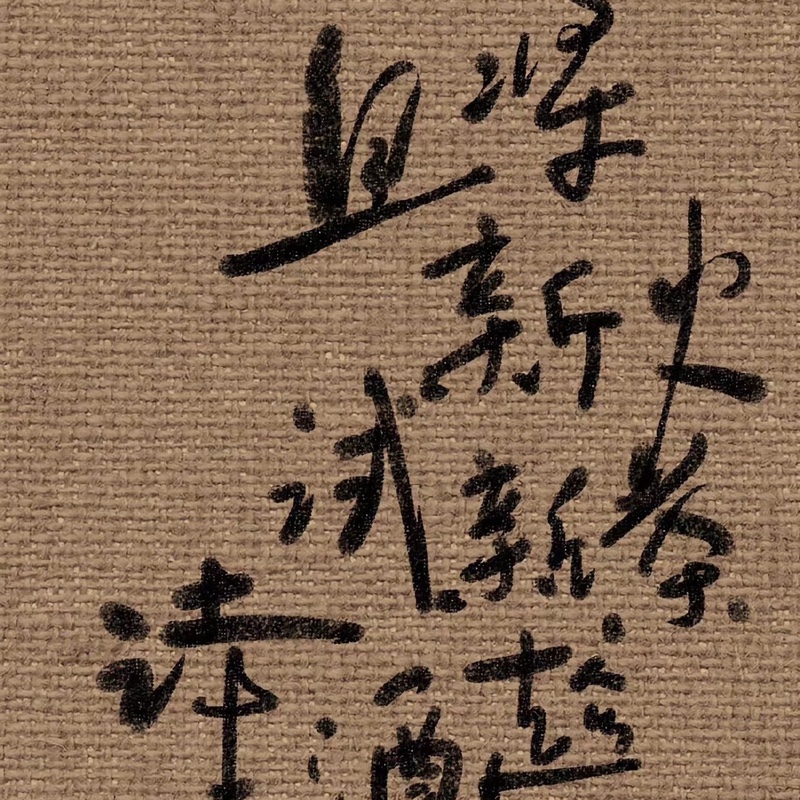 且将
新火
试新茶
诗酒趁